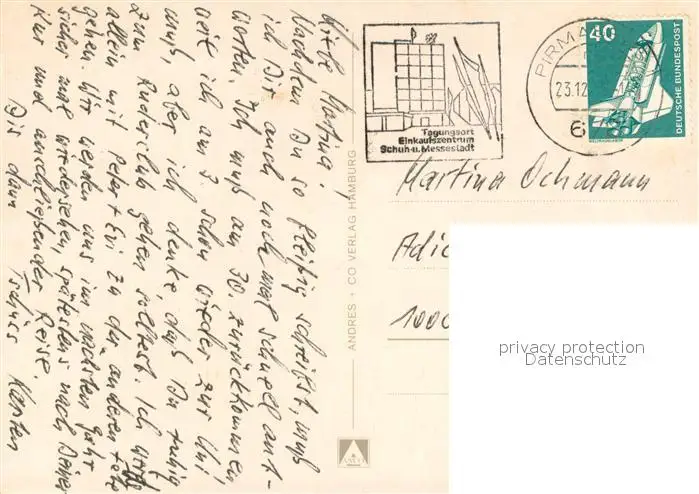 Liebe Martina!
Nachdem Du so fleißig schreibst, muß
ich Dir auch noch mal schnell ant-
worten. Ich muß am 30. zurückkommen
weil ich am 3. schon wieder zur Uni
muß, aber ich denke, daß Du ruhig
zum Ruderclub gehen solltest. Ich werde
allein mit Peter + Evi zu der anderen Fete
gehen. Wir werden uns im nächsten Jahr
sicher mal wiedersehen, spätestens nach Deiner
Kur und anschließender Reise.
Bis dann Tschüss Karsten
ANDRES + CO VERLAG HAMBURG
Tagungsort
Einkaufszentrum
Schuh-u.Messestadt
PIRMA
23.12
6
40
DEUTSCHE BUNDESPOST
Martina Ochmann
1000
privacy protection
Datenschutz